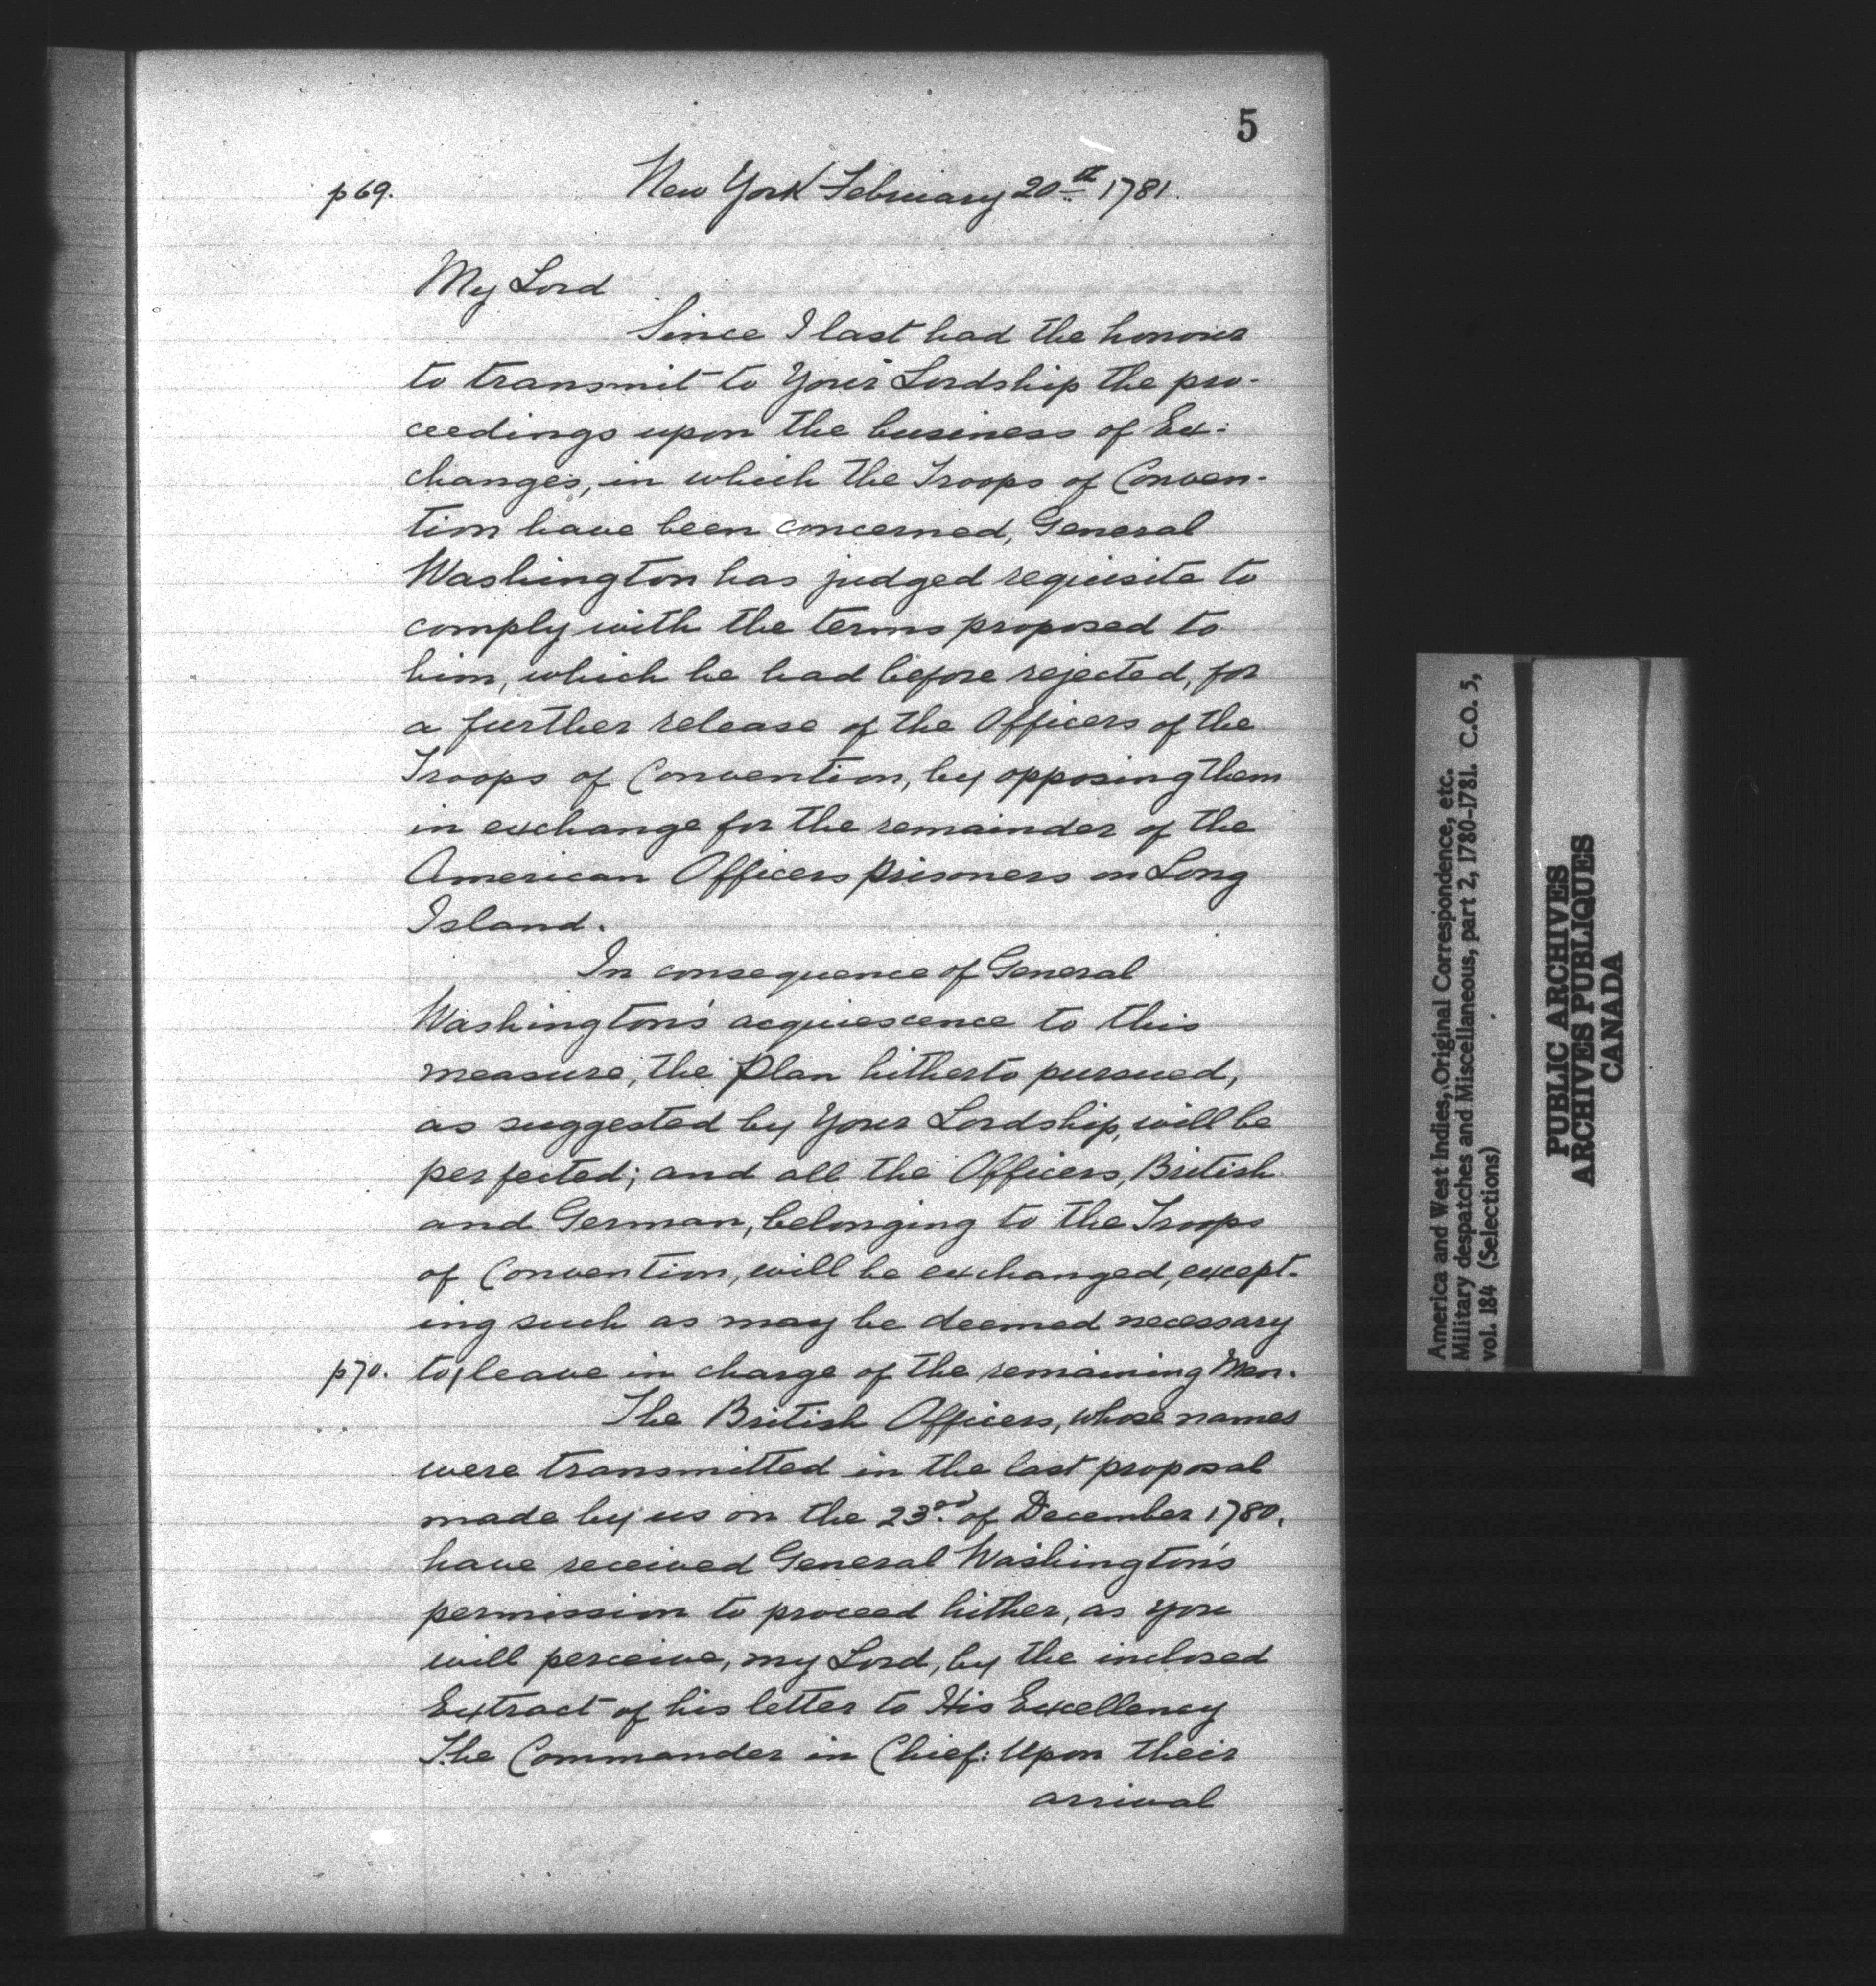 5
p 69. New York February 20th 1781.
My Lord
Since I last had the honour
to transmit to Your Lordship the pro-
ceedings upon the business of Ex-
changes, in which the Troops of Conven-
tion have been concerned, General
Washington has judged requisite to
comply with the terms proposed to
him, which he had before rejected, for
a further release of the Officers of the
Troops of Convention, by opposing them
in exchange for the remainder of the
American Officers prisoners on Long
Island.
In consequence of General
Washington's acquiescence to this
measure, the Plan hitherto pursued,
as suggested by Your Lordship, will be
perfected; and all the Officers, British
and German, belonging to the Troops
of Convention, will be exchanged, except-
ing such as may be deemed necessary
p 70. to/leave in charge of the remaining Men.
The British Officers, whose names
were transmitted in the last proposal
made by us on the 23rd of December 1780,
have received General Washington's
permission to proceed hither, as you
will perceive, my Lord, by the inclosed
Extract of his letter to His Excellency
The Commander in Chief: Upon their
arrival
America and West Indies, Original Correspondence, etc.
Military despatches and Miscellaneous, part 2, 1780-1781. C.O. 5,
vol. 184 (Selections)
PUBLIC ARCHIVES
ARCHIVES PUBLIQUES
CANADA